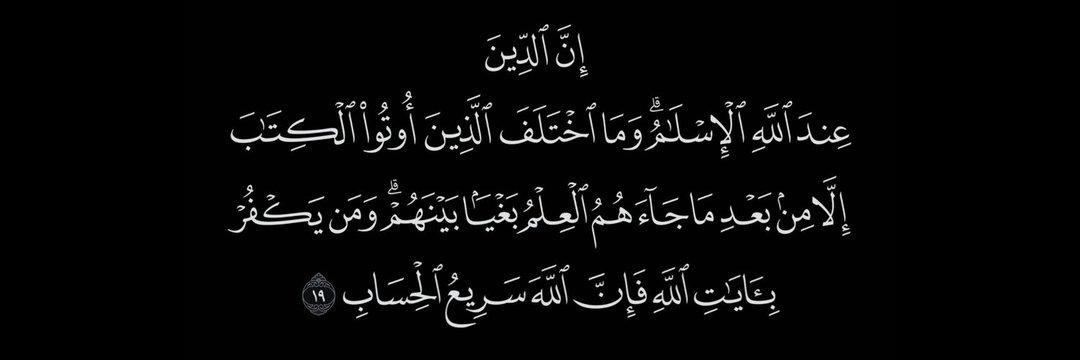 إِنَّ ٱلدِّينَ
عِندَ ٱللَّهِ ٱلْإِسْلَٰمُ ۗ وَمَا ٱخْتَلَفَ ٱلَّذِينَ أُوتُوا۟ ٱلْكِتَٰبَ
إِلَّا مِنۢ بَعْدِ مَا جَآءَهُمُ ٱلْعِلْمُ بَغْيًۢا بَيْنَهُمْ ۗ وَمَن يَكْفُرْ
بِـَٔايَٰتِ ٱللَّهِ فَإِنَّ ٱللَّهَ سَرِيعُ ٱلْحِسَابِ ١٩